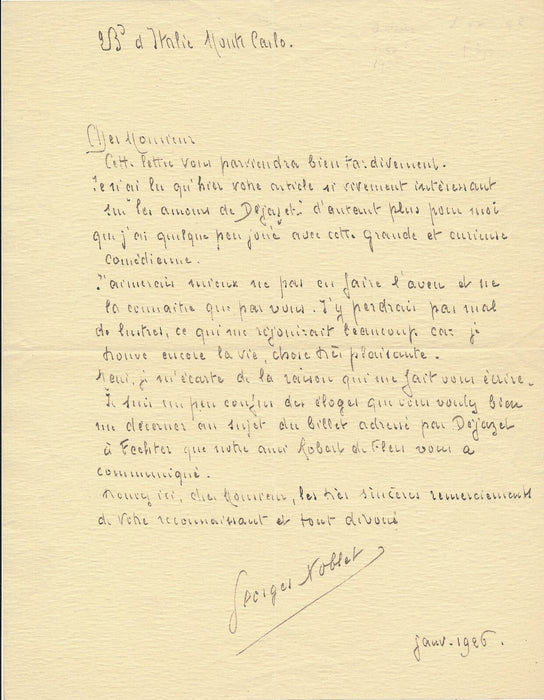 Bd d'Italie Monte Carlo.
Cher Monsieur
Cette lettre vous parviendra bien tardivement.
Je n'ai lu qu'hier votre article si vivement intéressant
sur "les amours de Déjazet" d'autant plus pour moi
que j'ai quelque peu joué avec cette grande et curieuse
comédienne.
J'aimerais mieux ne pas en faire l'aveu et ne
la connaitre que par vous. J'y perdrais pas mal
de lustres, ce qui me réjouirait beaucoup car je
trouve encore la vie, chose très plaisante.
je m'écarte de la raison qui me fait vous écrire.
Je suis un peu confus des éloges que vous voulez bien
me décerner au sujet du billet adressé par Déjazet
à Fechter que notre ami Robert de Flers vous a
communiqué.
ici, cher Monsieur, les très sincères remerciements
de votre reconnaissant et tout dévoué
Georges Noblet
janv. 1926.